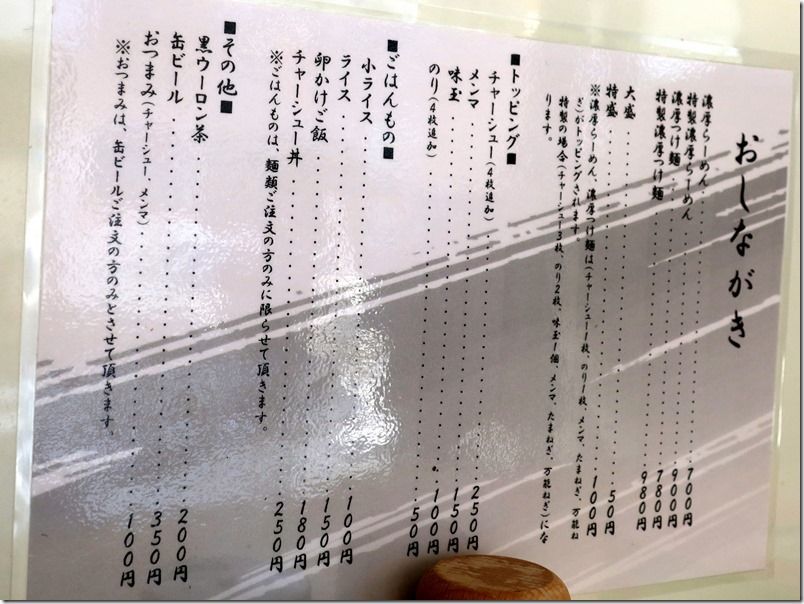 おしながき
濃厚らーめん 700円
特製濃厚らーめん 900円
濃厚つけ麺 780円
特製濃厚つけ麺 980円
大盛 50円
特盛 100円
※濃厚らーめん、濃厚つけ麺は(チャーシュー1枚、のり1枚、メンマ、たまねぎ、万能ね
ぎ)がトッピングされます。
特製の場合(チャーシュー3枚、のり2枚、味玉1個、メンマ、たまねぎ、万能ねぎ)にな
ります。
■トッピング■
チャーシュー(4枚追加) 250円
メンマ 150円
味玉 100円
のり(4枚追加) 50円
■ごはんもの■
小ライス 100円
ライス 150円
卵かけご飯 180円
チャーシュー丼 250円
※ごはんものは、麺類ご注文の方のみに限らせて頂きます。
■その他■
黒ウーロン茶 200円
缶ビール 350円
おつまみ(チャーシュー、メンマ) 100円
※おつまみは、缶ビールご注文の方のみとさせて頂きます。